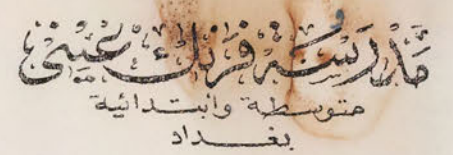 مدرسة فرنك عيني
متوسطة وابتدائية
بغداد